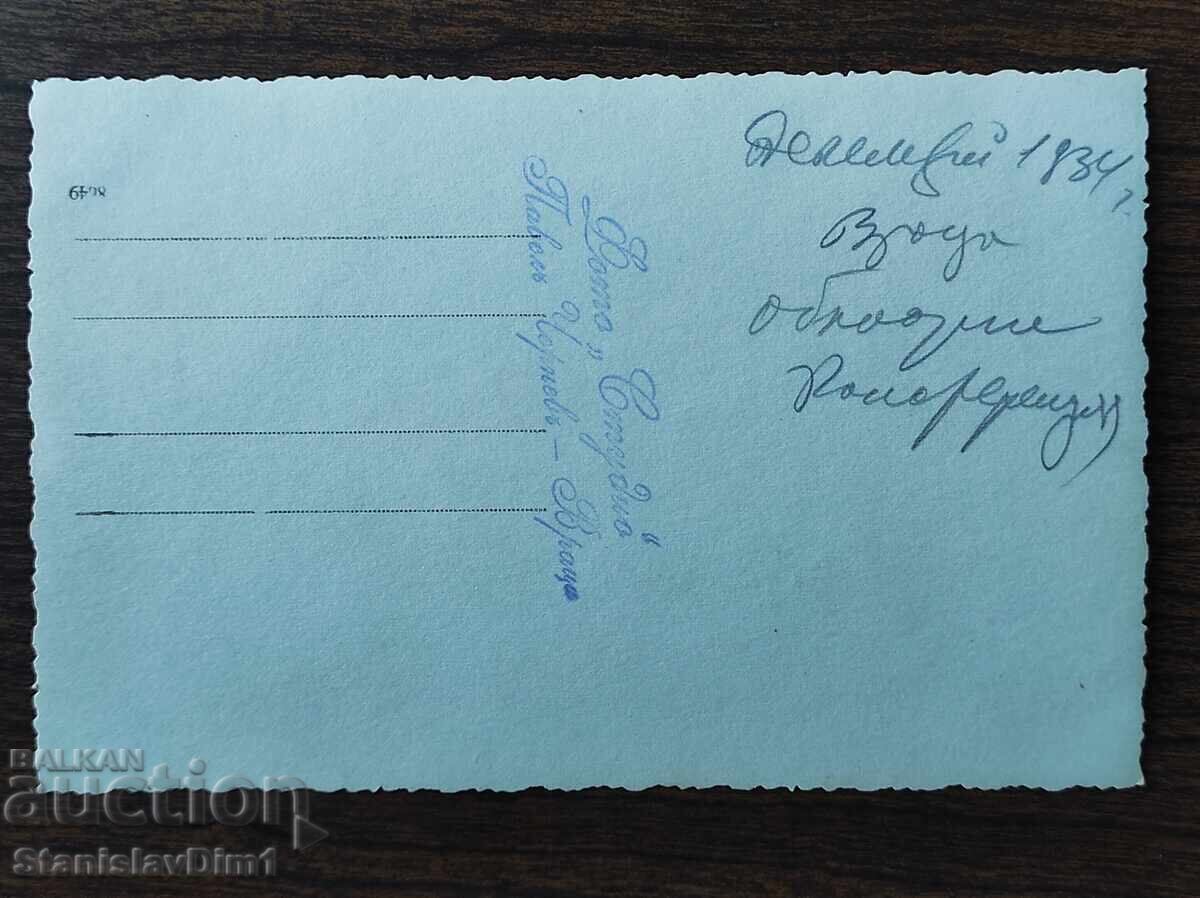 8649
Фото „Студио“
Павелъ Черневъ – Враца
Декемврий 1934 г.
Враца
областна
конференция
BALKAN
auction
StanislavDim1